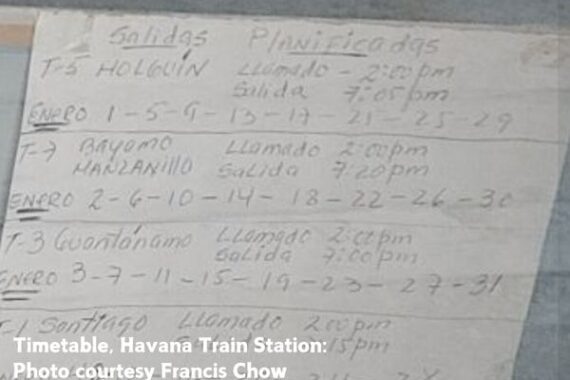 Salidas Planificadas
T-5 HOLGUIN Llamado - 2:00pm
Salida 7:05pm
ENERO 1-5-9-13-17-21-25-29
T-7 Bayamo Llamado 2:00pm
MANZANIllO Salida 7:20pm
ENERO 2-6-10-14-18-22-26-30
T-3 Guantánamo Llamado 2:00pm
Salida 7:00pm
ENERO 3-7-11-15-19-23-27-31
T-1 Santiago Llamado 2:00pm
15pm
Timetable, Havana Train Station:
Photo courtesy Francis Chow